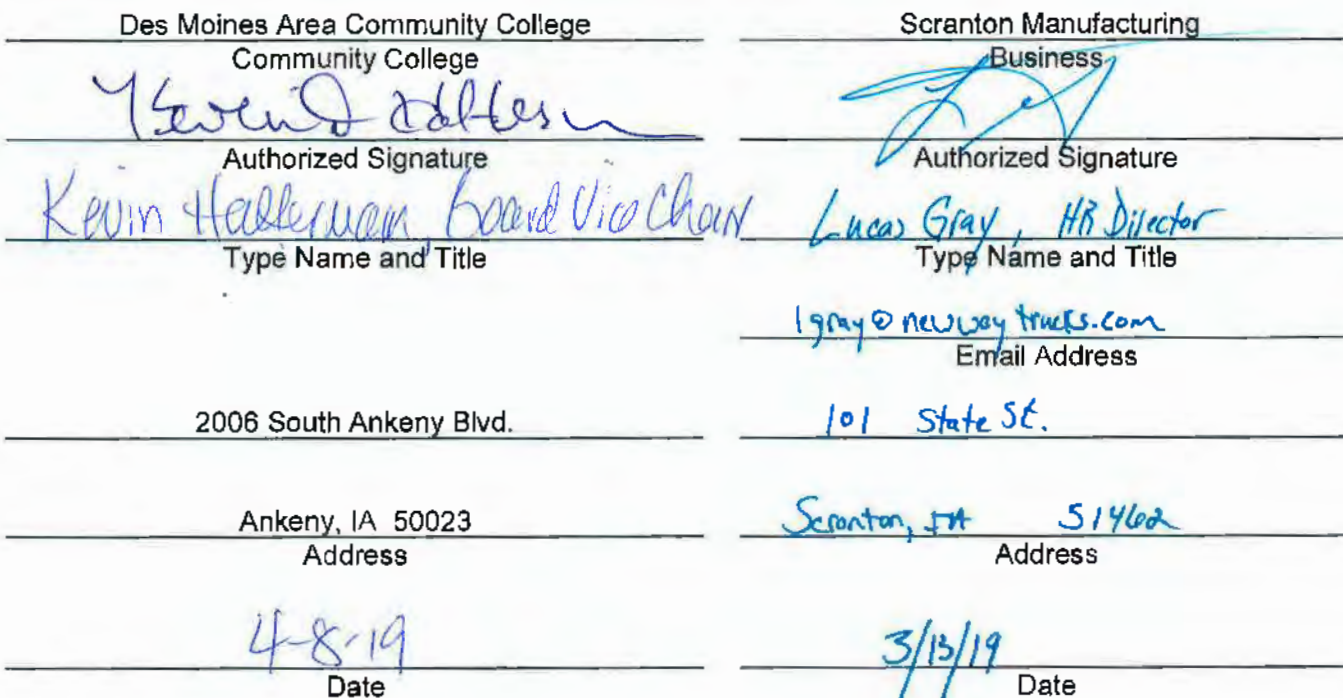 Des Moines Area Community College
Community College
Authorized Signature
Kevin Halterman, Board Vice Chair
Type Name and Title
2006 South Ankeny Blvd.
Ankeny, IA 50023
Address
4-8-19
Date
Scranton Manufacturing
Business
Authorized Signature
Lucas Gray, HR Director
Type Name and Title
lgray@newwaytrucks.com
Email Address
101 State St.
Scranton, IA 51462
Address
3/13/19
Date